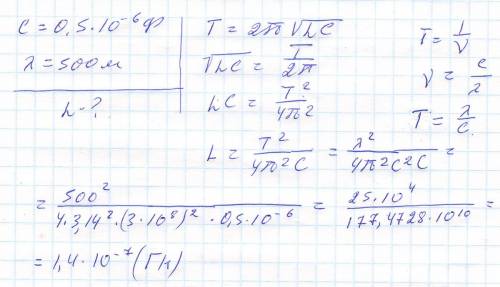 C = 0,5·10⁻⁶ Ф
λ = 500 м
L - ?
T = 2π √LC
√LC = T/2π
LC = T²/4π²
L = T²/4π²C = λ²/4π²C²C =
T = 1/ν
ν = c/λ
T = λ/c
= 500²/4·3,14²·(3·10⁸)²·0,5·10⁻⁶ = 25·10⁴/177,4728·10¹⁰ =
= 1,4·10⁻⁷ (Гн)